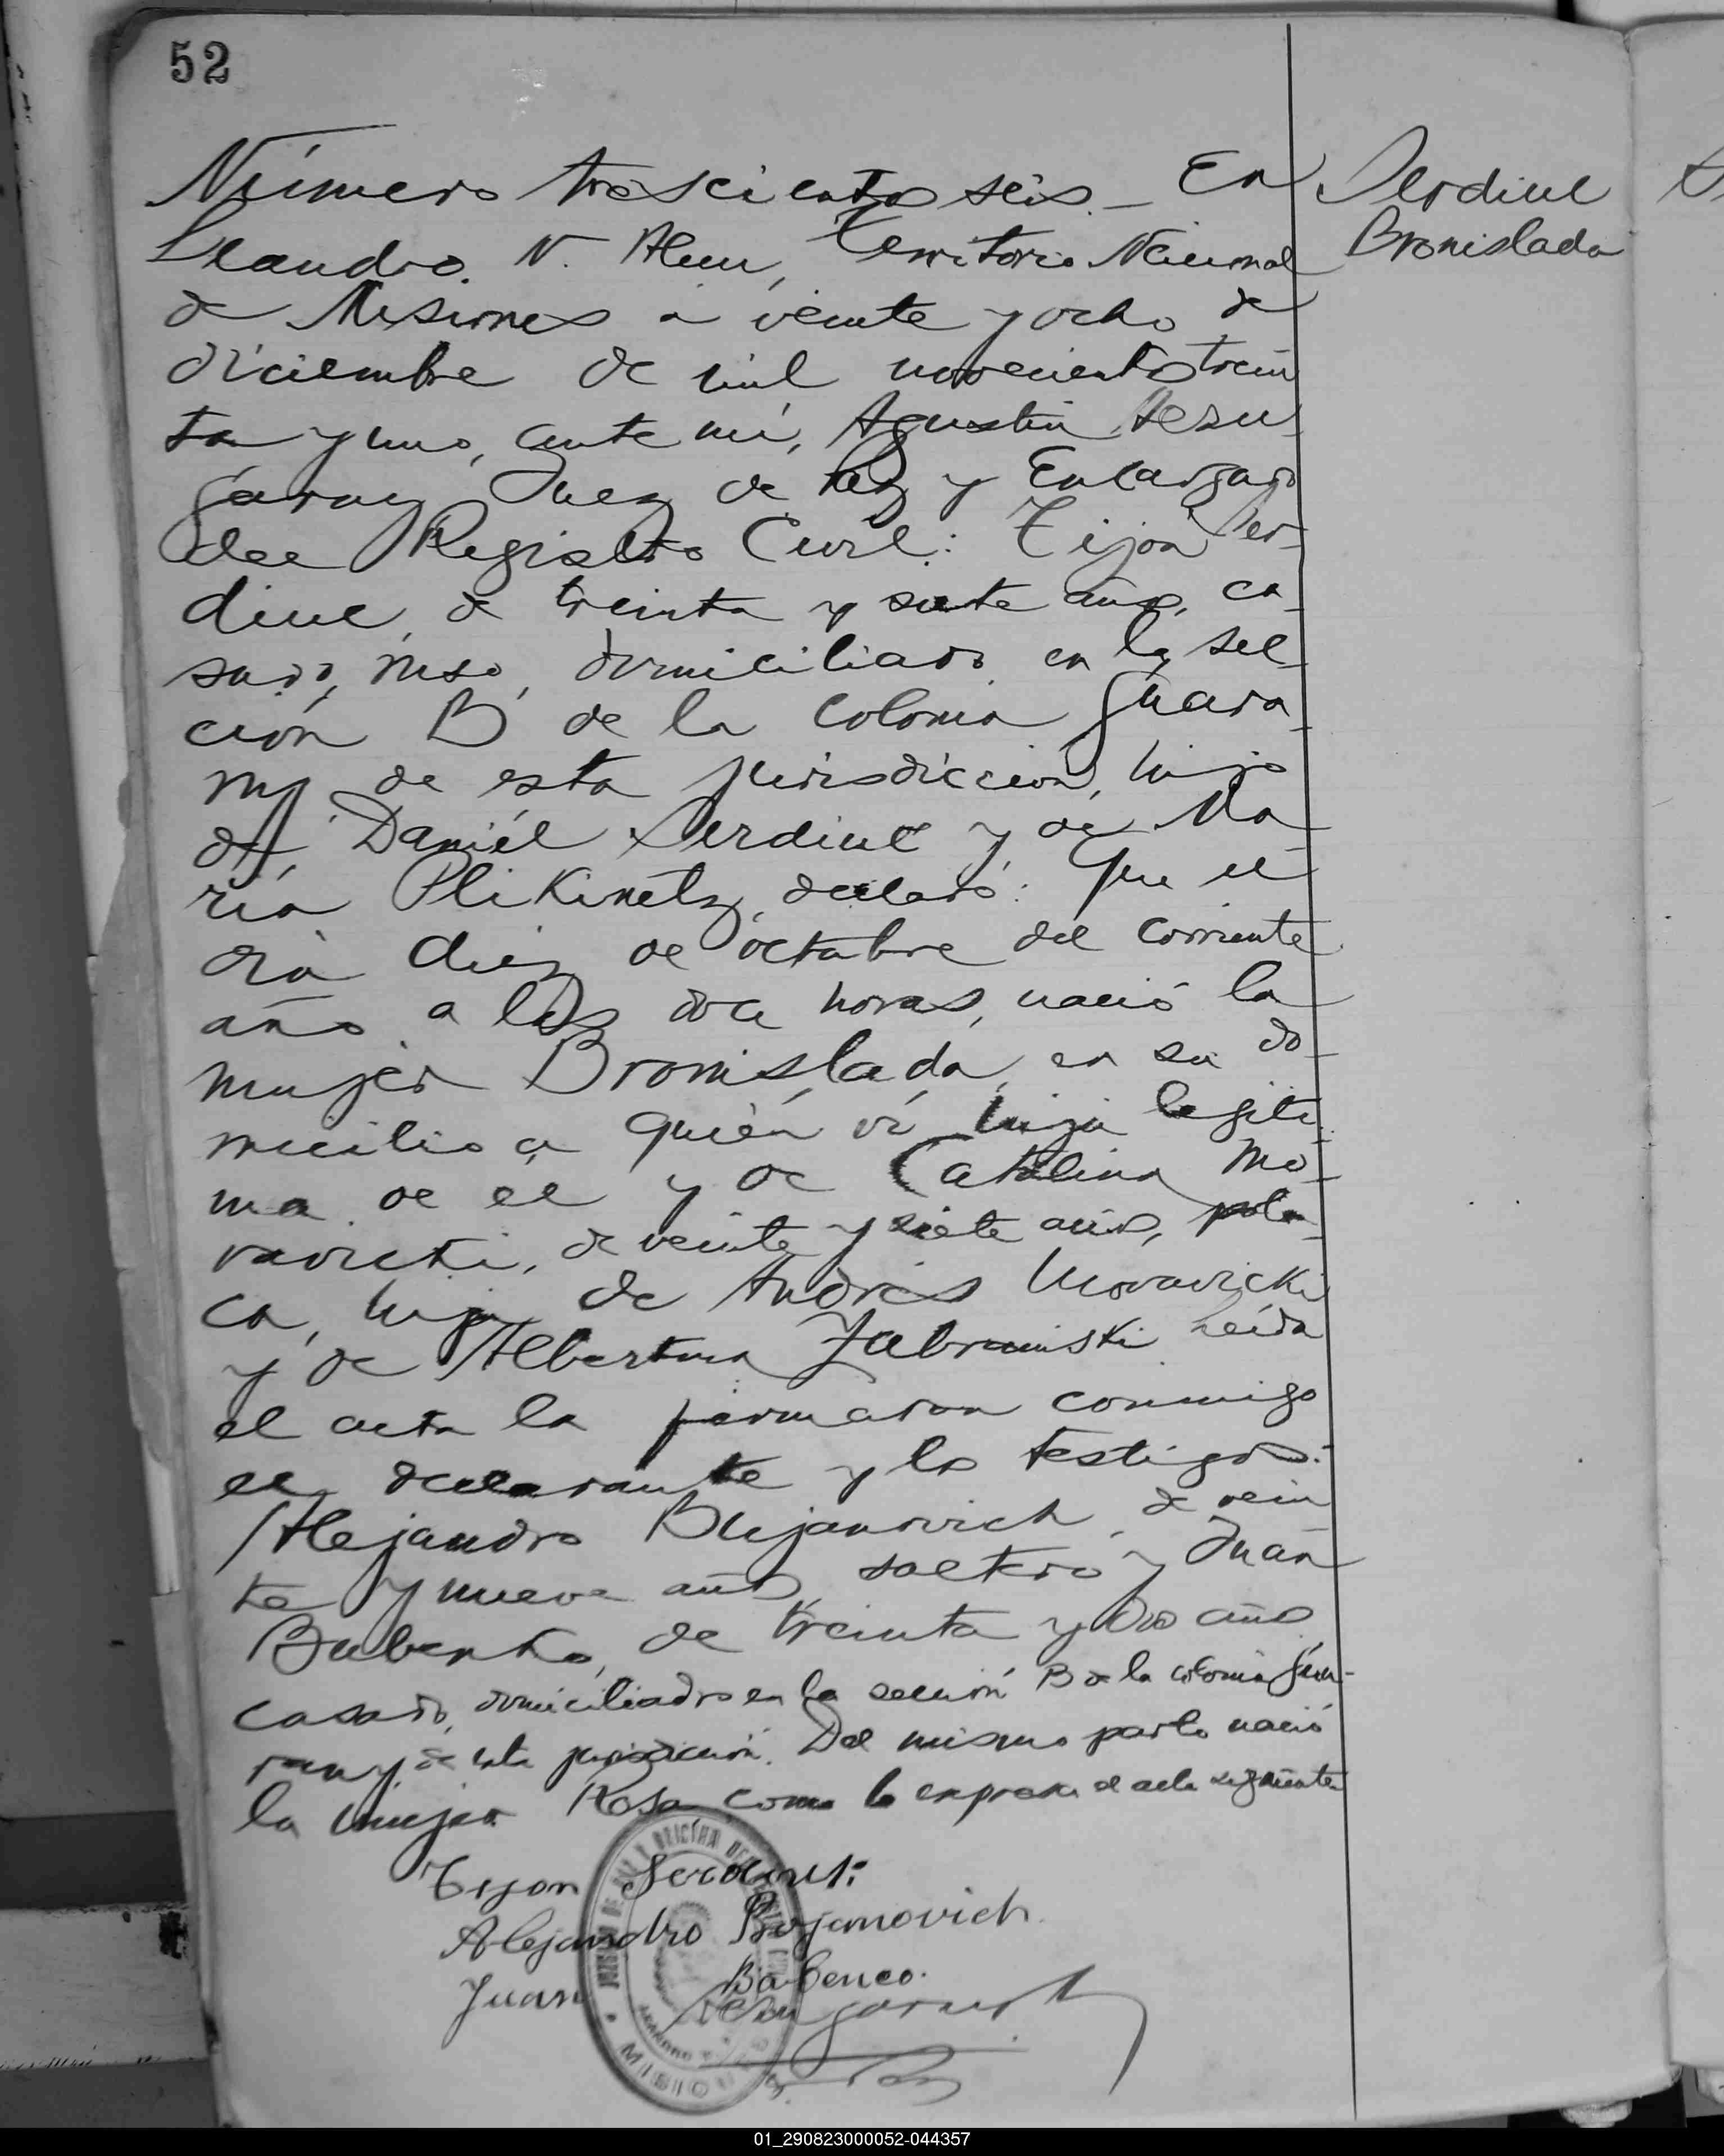 52
Número trescientos seis._ En
Leandro N. Alem, Territorio Nacional
de Misiones a veinte y ocho de
diciembre de mil novecientos trein
ta y uno, ante mí, Agustín
Juez de Paz y Encargado
del Registro Civil: Tijon Ser-
diuc, de treinta y siete años, ca-
sado, ruso, domiciliado en la sec
ción B de la colonia Guara-
ny de esta jurisdicción, hijo
de Daniél Serdiuc y de Ma-
ría Plikinetz, declaró: Que el
día diez de octubre del corriente
año a las doce horas, nació la
mujer Bronislada, en su do-
micilio a quién ví, hija legíti
ma de el y de Catalina Mo-
ravicki, de veinte y siete años, pola-
ca, hija de Andrés Moravicki
y de Albertina Zabraniski Leída
el acta la firmaron conmigo
el declarante y los testigos:
Alejandro Bujanovich, de vein
te y nueve años, soltero y Juan
Babenko, de treinta y dos años
casado, domiciliados en la sección B de la colonia Gua-
rany de esta jurisdicción. Del mismo parto nació
la mujer Rosa como lo expresa el acta siguiente
Serdiuc
Bronislada
Tijon
Alejandro Bojanovich.
Juan Babenco.
MISIONES
01_290823000052-044357